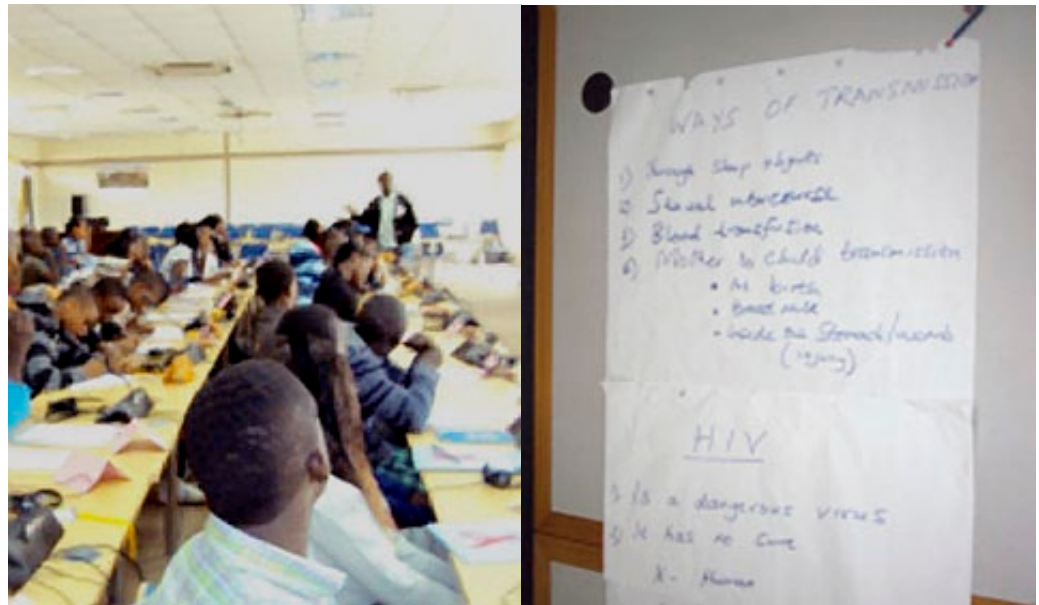 WAYS OF TRANSMISSION
1) Through sharp objects
2) Sexual intercourse
3) Blood transfusion
4) Mother to child transmission
• At birth
• Breast milk
• Inside the stomach/womb
(injury)
HIV
1) Is a dangerous virus
2) It has no cure
H - Human